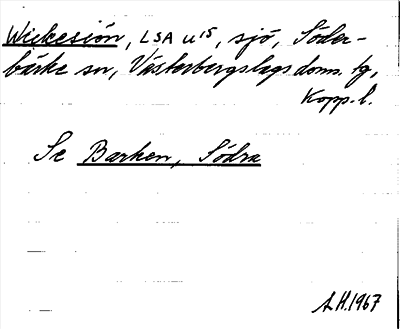 Wiekesiön, LSA U15, sjö, Söder-
bärke sn, Västerbergslags doms. tg,
Kopp. l.
Se Barken, Södra
A.H. 1967